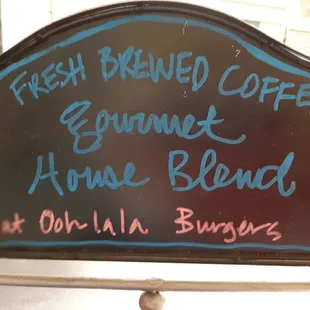 FRESH BREWED COFFEE
Gourmet
House Blend
at Ooh lala Burgers